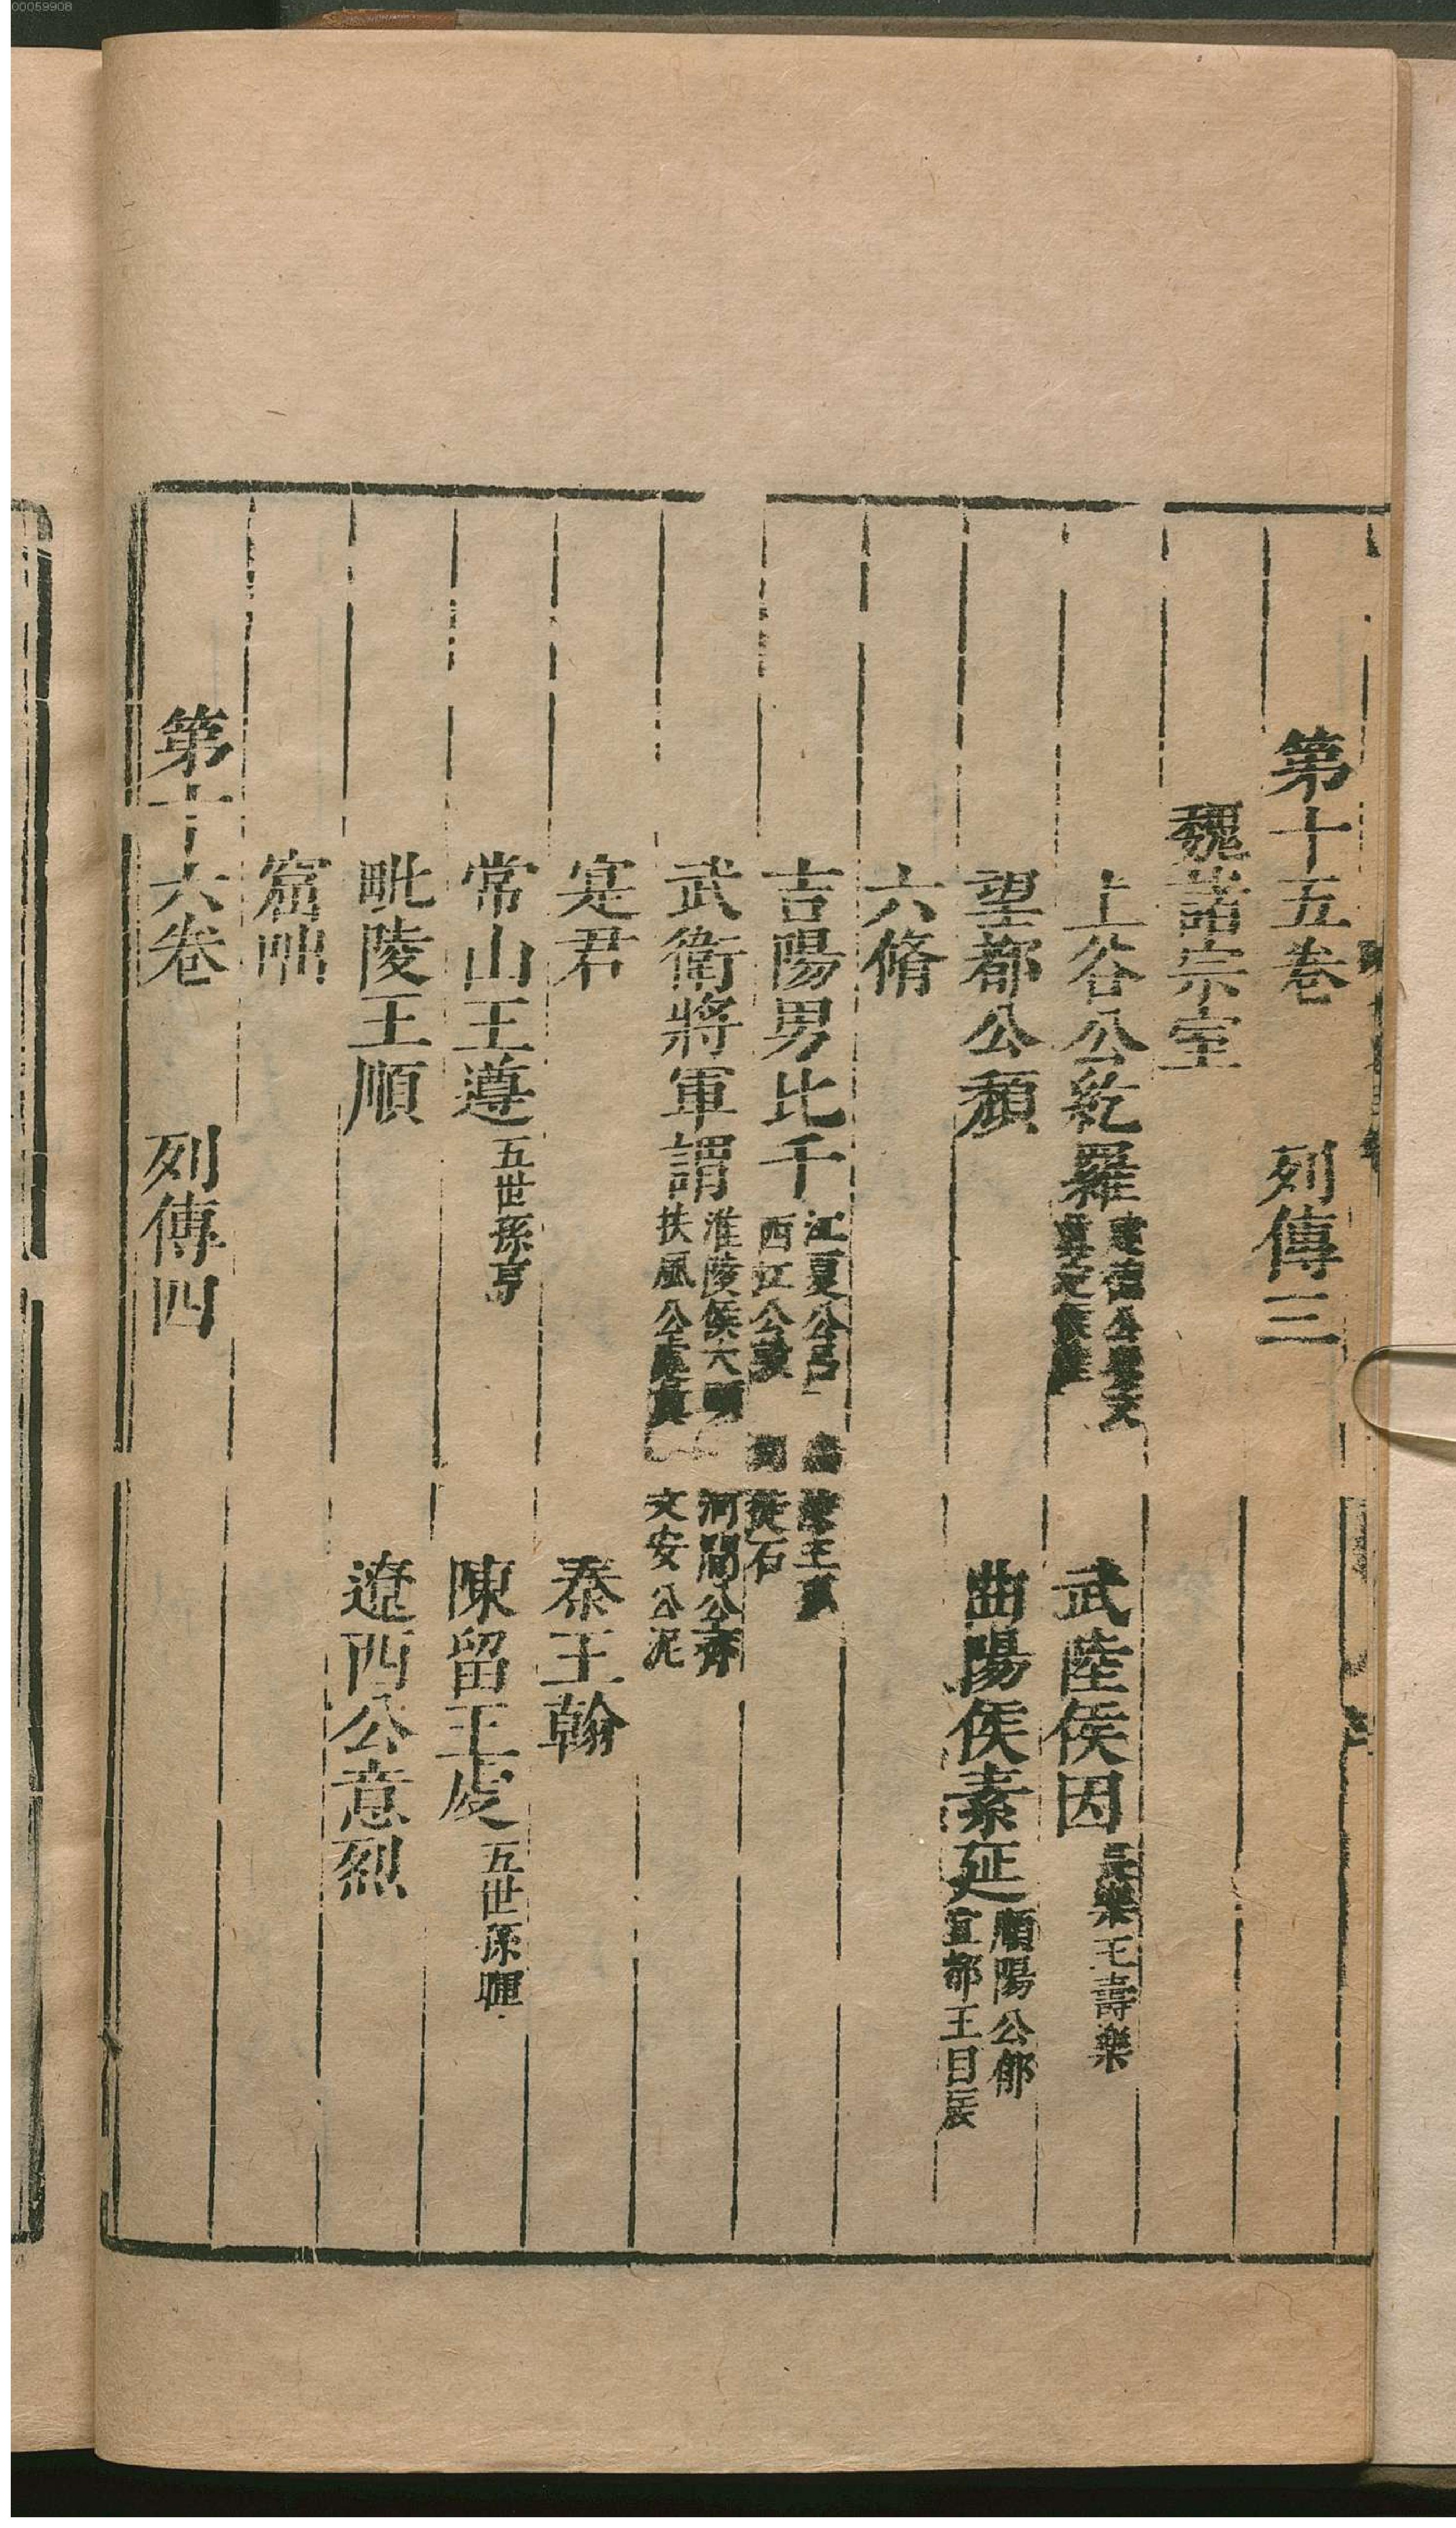 00059908
第十五卷　列傳三
魏諸宗室
上谷公紇羅　武陸侯因 長樂王壽樂
望都公頹　曲陽侯素延 順陽公郁 宜都王目辰
六脩
吉陽男比干 江夏公呂 西江公
武衛將軍謂 淮陵侯大頭 扶風公處真 河間公齊 文安公泥
寔君　秦王翰
常山王遵 五世孫亨　陳留王虔 五世孫暉
毗陵王順　遼西公意烈
窟咄
第十六卷　列傳四